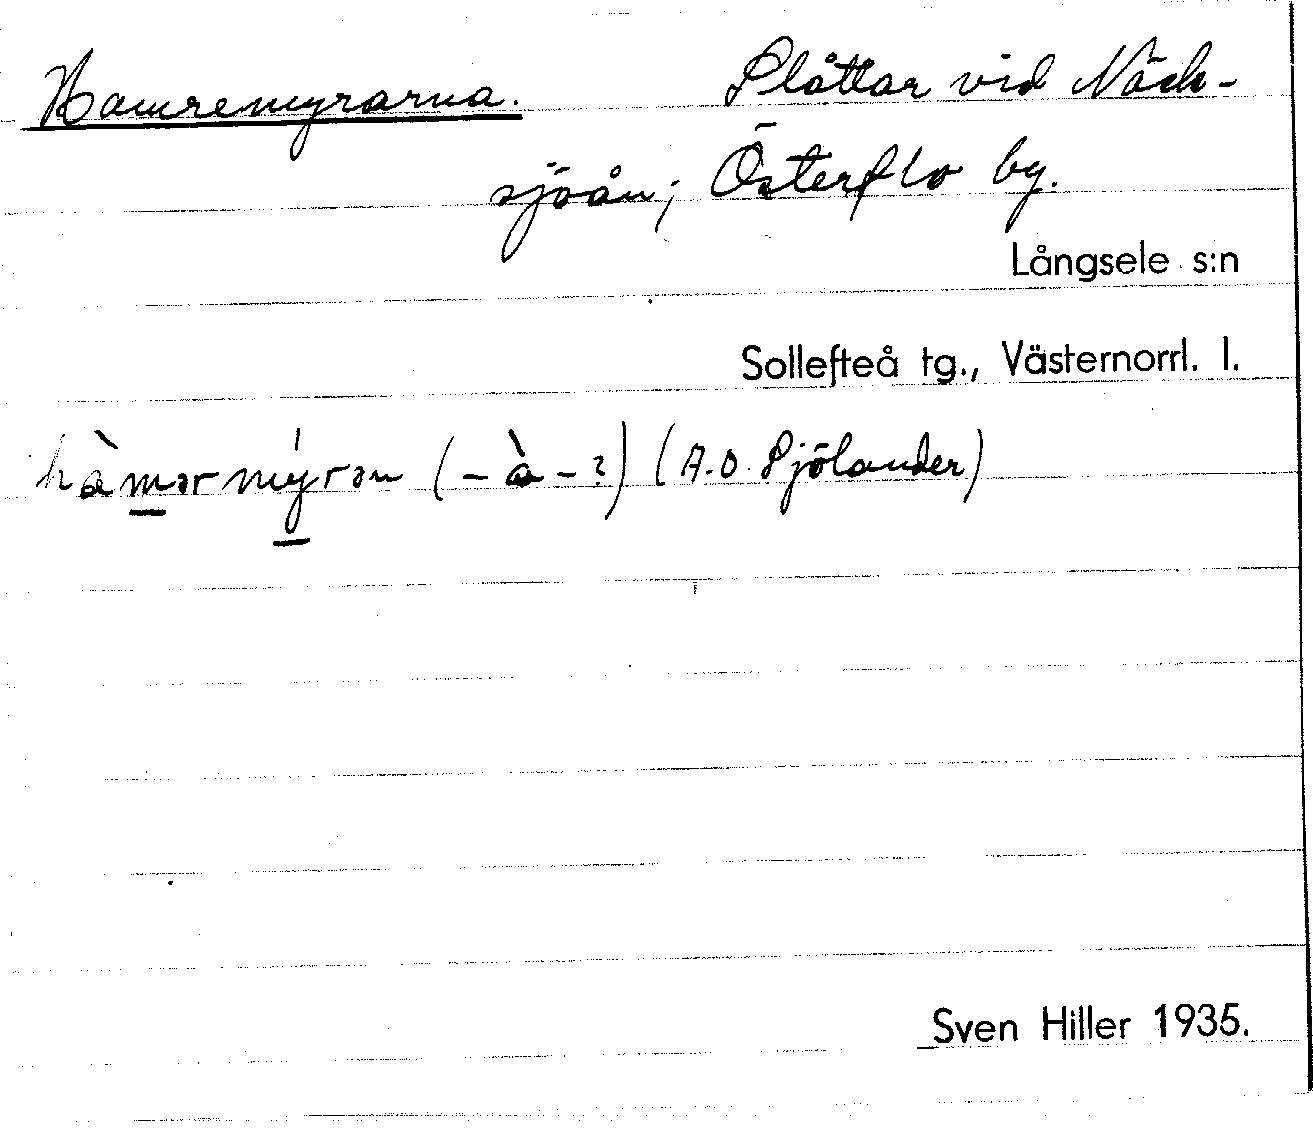 Hamremyrarna. Slåttar vid Näck-
sjöån; Österflo by.
Långsele s:n
Sollefteå tg., Västernorrl. l.
hàmərmýrən (-à-?) (A.O. Sjölander)
Sven Hiller 1935.